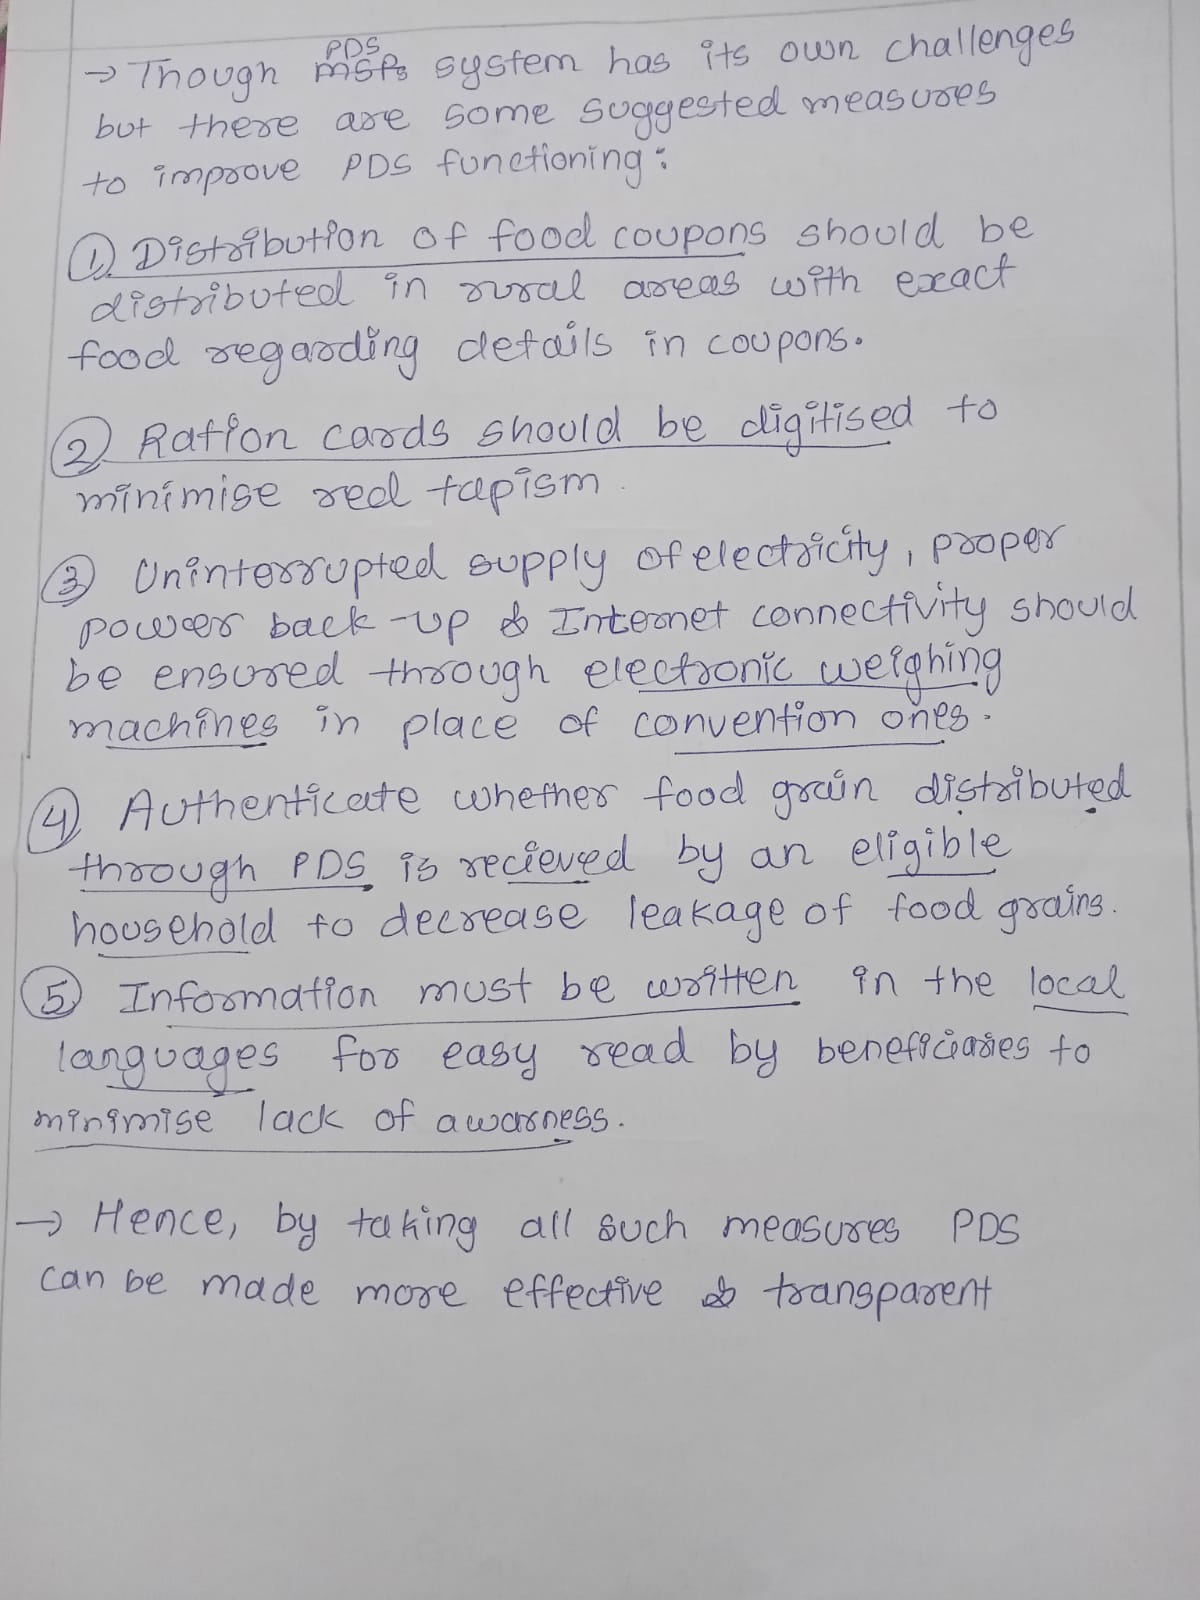 PDS
→ Though MSPs system has its own challenges
but there are some suggested measures
to improve PDS functioning :
① Distribution of food coupons should be
distributed in rural areas with exact
food regarding details in coupons.
② Ration cards should be digitised to
minimise red tapism.
③ Uninterrupted supply of electricity, proper
power back-up & Internet connectivity should
be ensured through electronic weighing
machines in place of convention ones.
④ Authenticate whether food grain distributed
through PDS is recieved by an eligible
household to decrease leakage of food grains.
⑤ Information must be written in the local
languages for easy read by beneficiaries to
minimise lack of awarness.
→ Hence, by taking all such measures PDS
can be made more effective & transparent